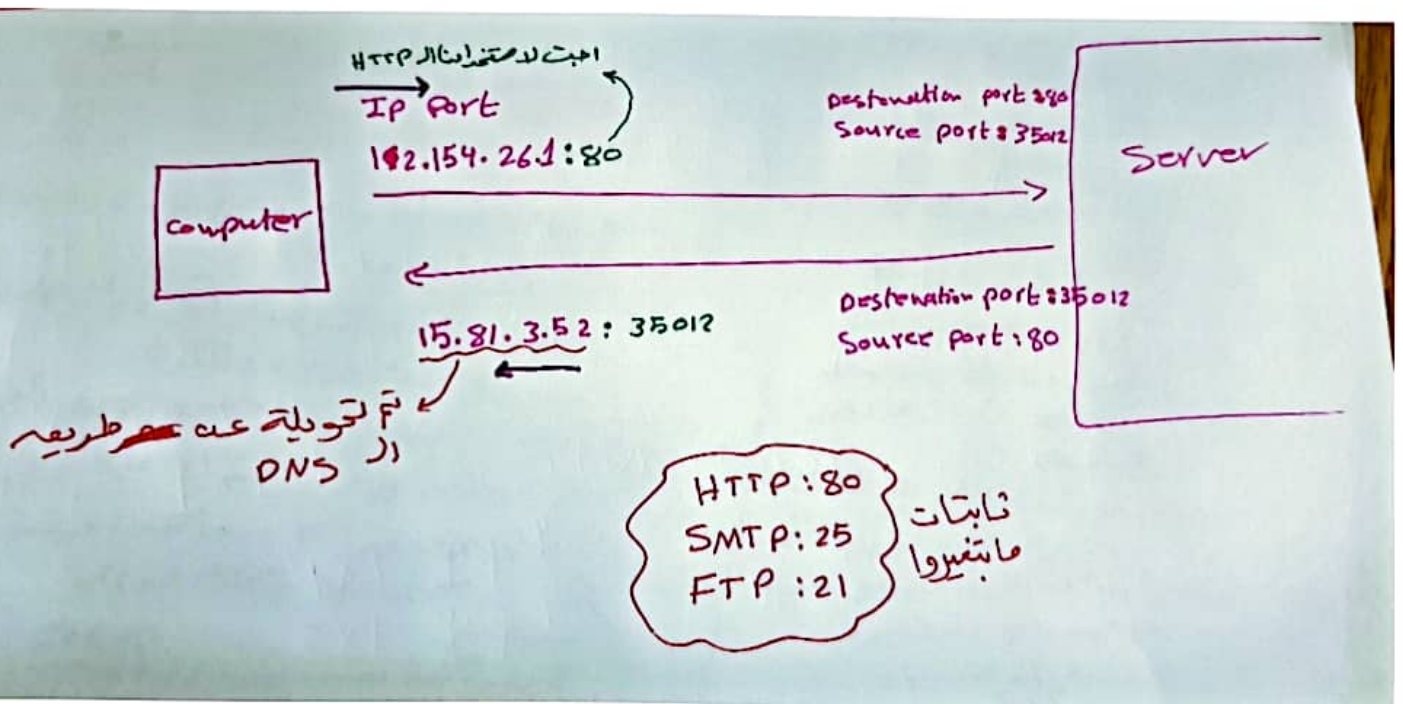 اجت لاستخدامنا ال HTTP
IP Port
192.154.26.1:80
Computer
Destenation port:80
Source port:35012
Server
15.81.3.52:35012
Destenation port:35012
Source port:80
تم تحويلة عن طريق
ال DNS
HTTP:80
SMTP:25
FTP:21
ثابتات
ما بتغيروا